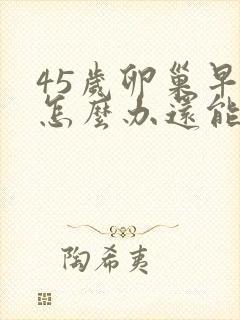 45歲卵巢早
怎麼办還能
陶希夷